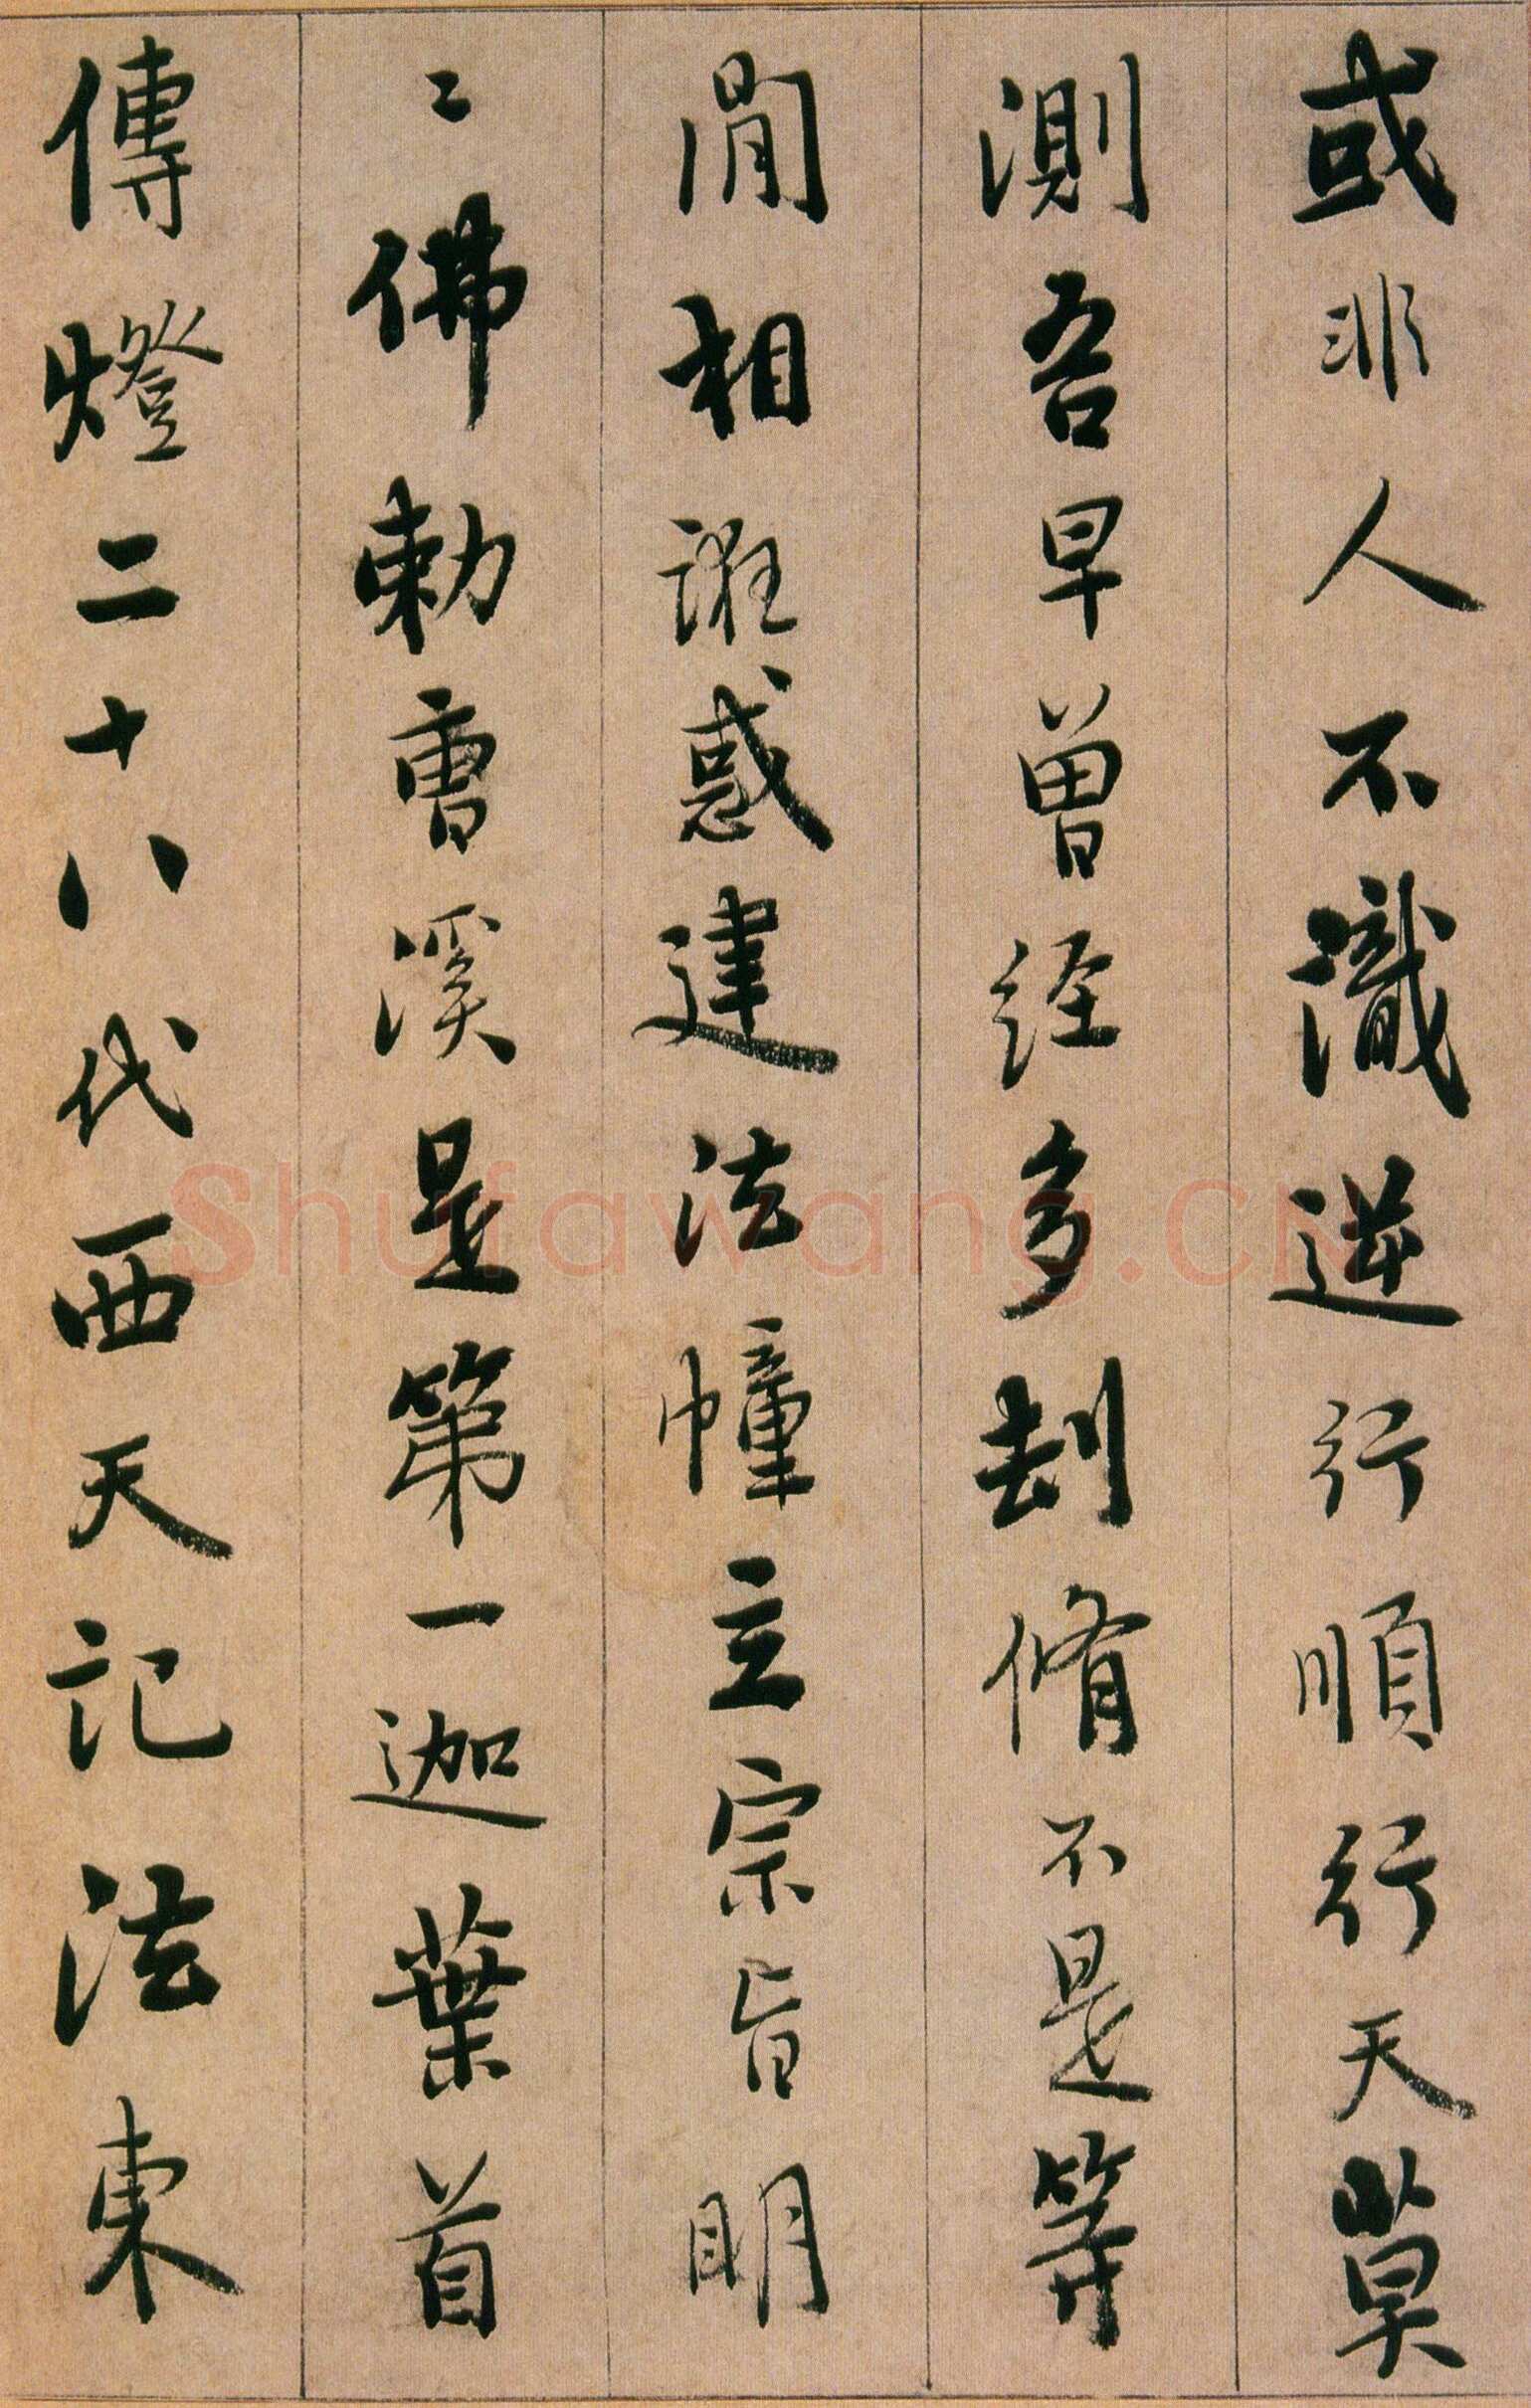 或非人不識逆行順行天莫
測吾早曾經多劫脩不是等
閒相誑惑建法幢立宗旨明
〻佛勅曹溪是第一迦葉首
傳燈二十八代西天記法東
Shufawang.CN